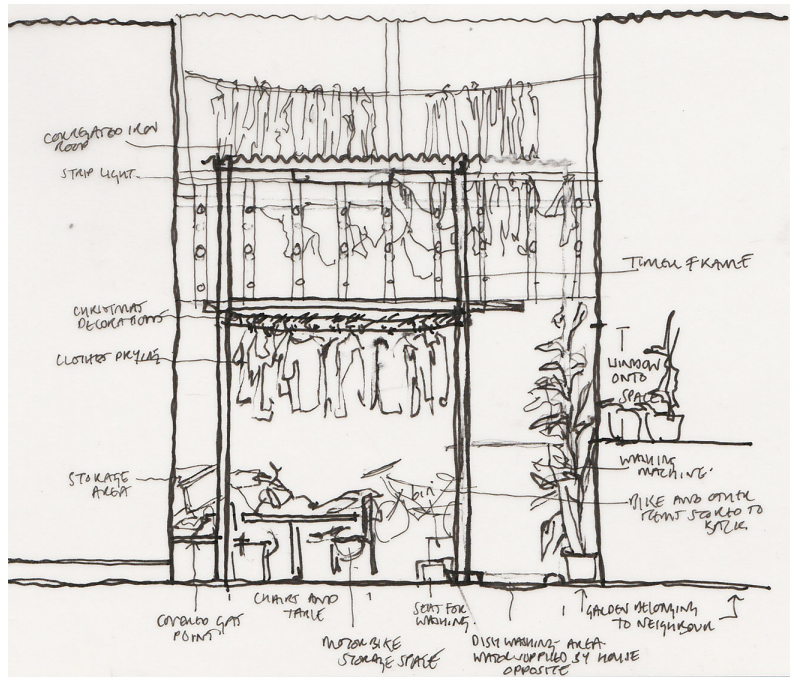 CORREGATED IRON
ROOF
STRIP LIGHT
TIMBER FRAME
CHRISTMAS
DECORATIONS
CLOTHES DRYING
WINDOW
ONTO
SPACE
STORAGE
AREA
WASHING
MACHINE
BIKE AND OTHER
ITEMS STORED TO
BACK
COVERED GAS
POINT
CHAIRS AND
TABLE
MOTORBIKE
STORAGE SPACE
SEAT FOR
WASHING
DISH WASHING AREA
WATER SUPPLIED BY HOUSE
OPPOSITE
GARDEN BELONGING
TO NEIGHBOUR